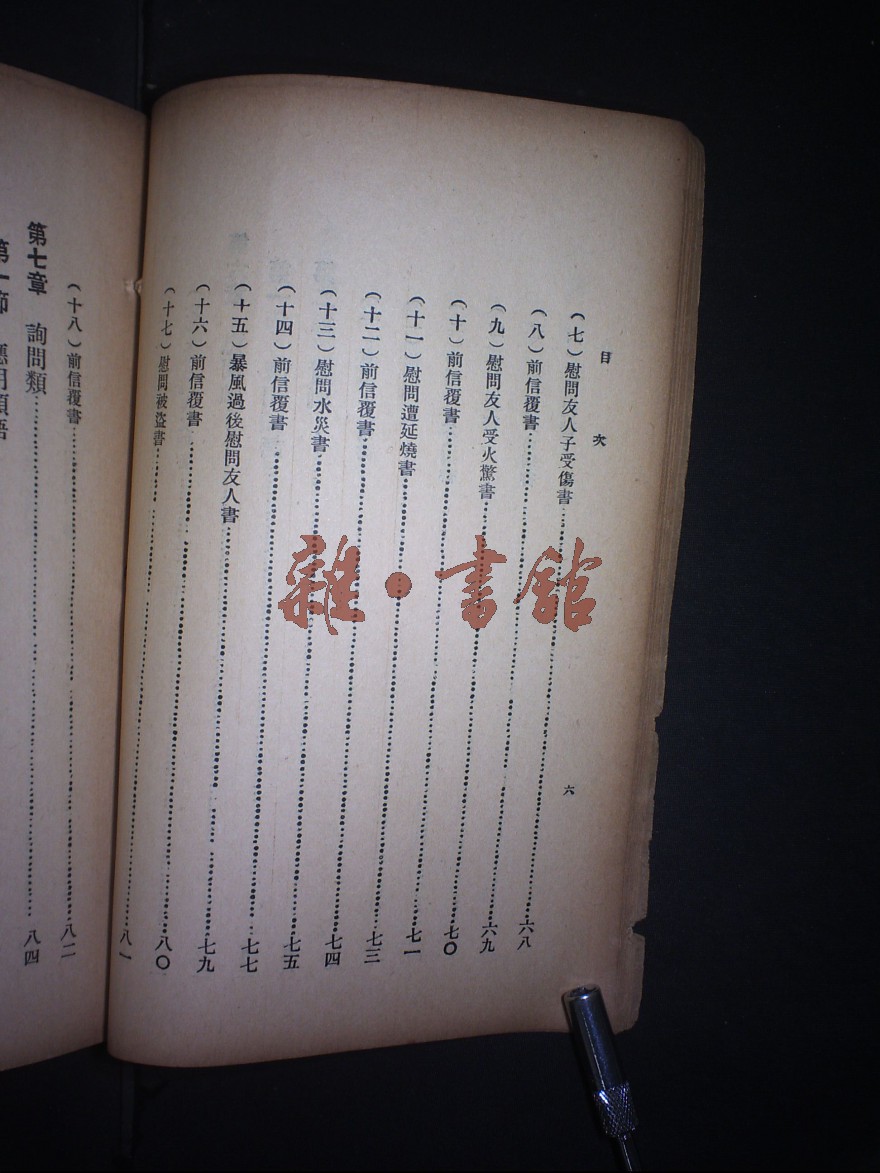 目次
六
(七)慰問友人子受傷書……六八
(八)前信覆書……六九
(九)慰問友人受火驚書……七〇
(十)前信覆書……七一
(十一)慰問遭延燒書……七三
(十二)前信覆書……七四
(十三)慰問水災書……七五
(十四)前信覆書……七七
(十五)暴風過後慰問友人書……七九
(十六)前信覆書……八〇
(十七)慰問被盜書……八一
(十八)前信覆書……八二
第七章 詢問類……八四
第一節
雜·書館